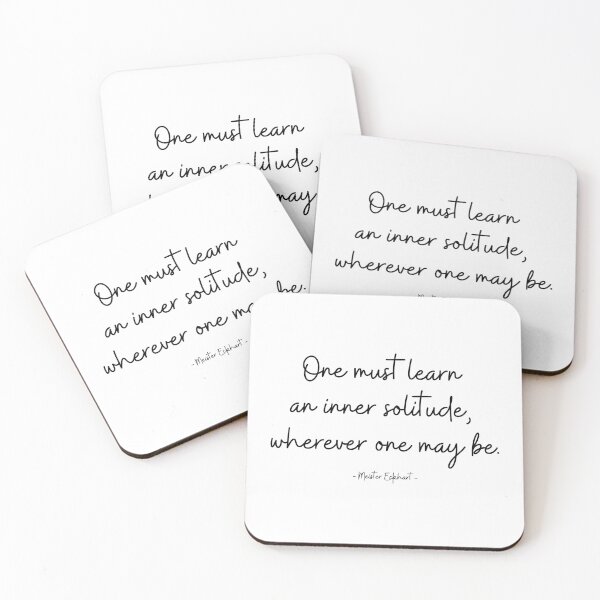 One must learn
an inner solitude,
may
One must learn
an inner solitude,
wherever one may be.
One must learn
an inner solitude,
wherever one may be.
- Meister Eckhart -
One must learn
an inner solitude,
wherever one may be.
- Meister Eckhart -